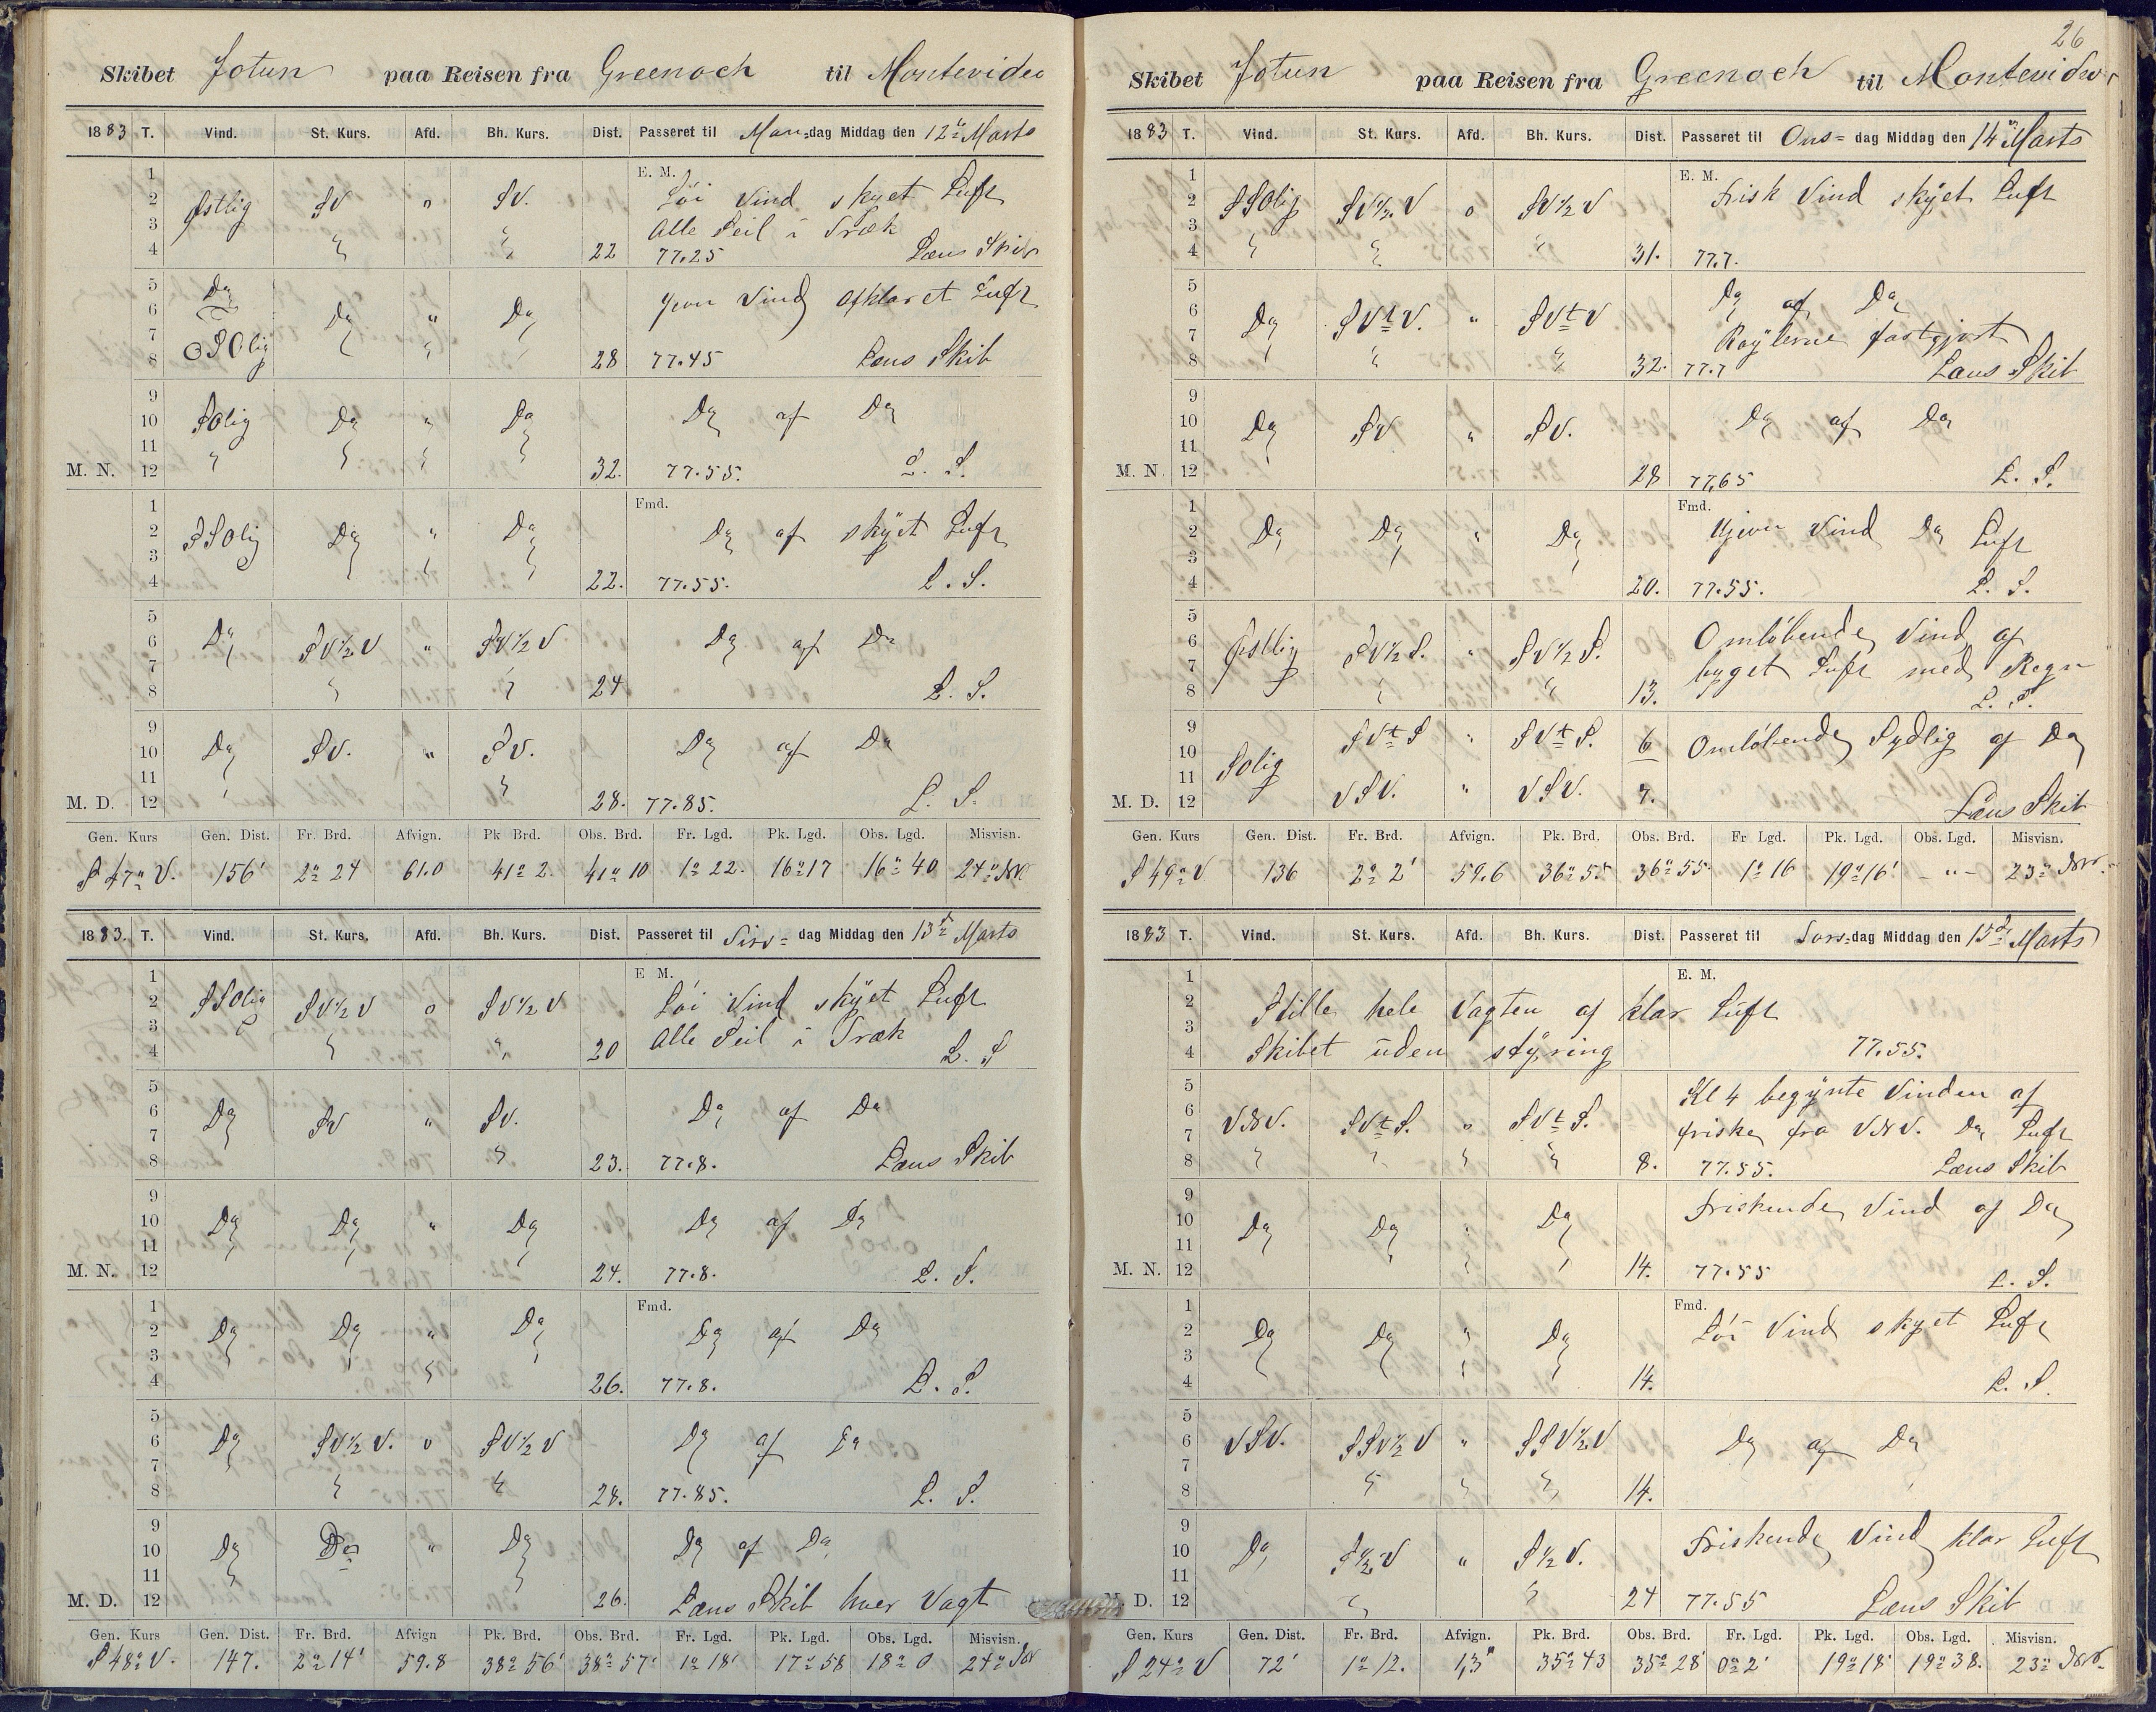 Skibet Jotun paa Reisen fra Greenock til Montevideo
1883 T. Vind. St. Kurs. Afd. Bh. Kurs. Dist. Passeret til Man=dag Middag den 12te Marts
E. M.
1
2 Østlig SV o SV. Löi Vind skyet Luft
3 Alle Seil i Træk
4 " " 22 77.25 Læns Skib
5 Do Jevn Vind afklaret Luft
6 Do " Do
7 OSOlig
8 28 77.45 Læns Skib
9
10 SOlig Do " Do Do af Do
11
M. N. 12 " 32. 77.55. L. S.
Fmd.
1
2 SSOlig Do " Do Do af skyet Luft
3
4 22. 77.55. L. S.
5
6 Do SV½V " SV½V Do af Do
7
8 24 L. S.
9
10 Do SV. " SV. Do af Do
11
M. D. 12 28. 77.85. L. S.
Gen. Kurs Gen. Dist. Fr. Brd. Afvign. Pk Brd. Obs. Brd. Fr. Lgd. Pk. Lgd. Obs. Lgd. Misvisn.
S 47° V. 156' 2° 24 61.0 41° 2. 41° 10 1° 22. 16° 17 16° 40 24° NV
1883. T. Vind. St. Kurs. Afd. Bh. Kurs. Dist. Passeret til Tirs= dag Middag den 13de Marts
E M.
1
2 SSOlig SV½V o SV½V Löi Vind skyet Luft
3 Alle Seil i Træk
4 20 L. S
5
6 Do SV " SV. Do af Do
7
8 23. 77.8. Læns Skib
9
10 Do Do " Do Do af Do
11
M. N. 12 24. 77.8. L. S.
Fmd.
1
2 Do Do " Do Do af Do
3
4 26. 77.8. L. S.
5
6 Do SV½V. o SV½V Do af Do
7
8 28. 77.85. L. S.
9
10 Do Do " Do Do af Do
11
M. D. 12 26. Læns Skib hver Vagt
Gen. Kurs Gen. Dist. Fr. Brd. Afvign Pk. Brd. Obs. Brd. Fr. Lgd. Pk. Lgd. Obs. Lgd. Misvisn.
S 48° V. 147. 2° 14' 59.8 38° 56' 38° 57' 1° 18' 17° 58 18° 0 24° NV
26
Skibet Jotun paa Reisen fra Greenock til Montevideo
1883 T. Vind. St. Kurs. Afd. Bh. Kurs. Dist. Passeret til Ons= dag Middag den 14de Marts
E. M.
1
2 SSOlig SV½V o SV½V Frisk Vind skyet Luft
3
4 " " " 31. 77.7.
5
6 Do SVtV. " SVtV Do af Do
7 Røylerne fastgjort
8 32. 77.7 Læns Skib
9
10 Do SV " SV. Do af Do
11
M. N. 12 28 77,65 L. S.
Fmd.
1
2 Do Do " Do Ujevn Vind Do Luft
3
4 20. 77.55. L. S.
5
6 Østlig SV½S. " SV½S. Omløbende Vind af
7 byget Luft med Regn
8 13. L. S.
9
10 SOlig SVtS " SVtS. 6 Omløbende Sydlig af Do
11
M. D. 12 VSV. " VSV. 7. Læns Skib
Gen. Kurs Gen. Dist. Fr. Brd. Afvign. Pk. Brd. Obs. Brd. Fr Lgd. Pk. Lgd. Obs. Lgd. Misvisn.
S 49° V 136 2° 2' 59.6 36° 55 36° 55. 1° 16 19° 16' - " - 23° NV.
1883 T. Vind. St. Kurs. Afd. Bh. Kurs. Dist. Passeret til Tors=dag Middag den 15de Marts
E. M.
1
2 Stille hele Vagten af klar Luft
3
4 Skibet uden styring 77.55.
5 Kl 4 begynte Vinden af
6 VNV. SVtS. o SVtS.
7 friske fra VNV. Do Luft
8 8. 77.55. Læns Skib
9 Friskende Vind af Do
10 Do Do " Do
11
M. N. 12 14. 77.55 L. S.
Fmd.
1
2 Do Do " Do Löi Vind skyet Luft
3
4 14. L. S.
5
6 VSV. SSV½V " SSV½V Do af Do
7
8 14.
9
10 Do S½V " S½V. Friskende Vind klar Luft
11
D. 12 24 77.55 Læns Skib
Gen. Kurs Gen. Dist. Fr. Brd. Afvign. Pk. Brd. Obs. Brd. Fr. Lgd. Pk. Lgd. Obs. Lgd. Misvisn.
S 24° V 72' 1° 12. 1,3 35° 43 35° 28' 0° 2' 19° 18' 19° 38. 23° NV.